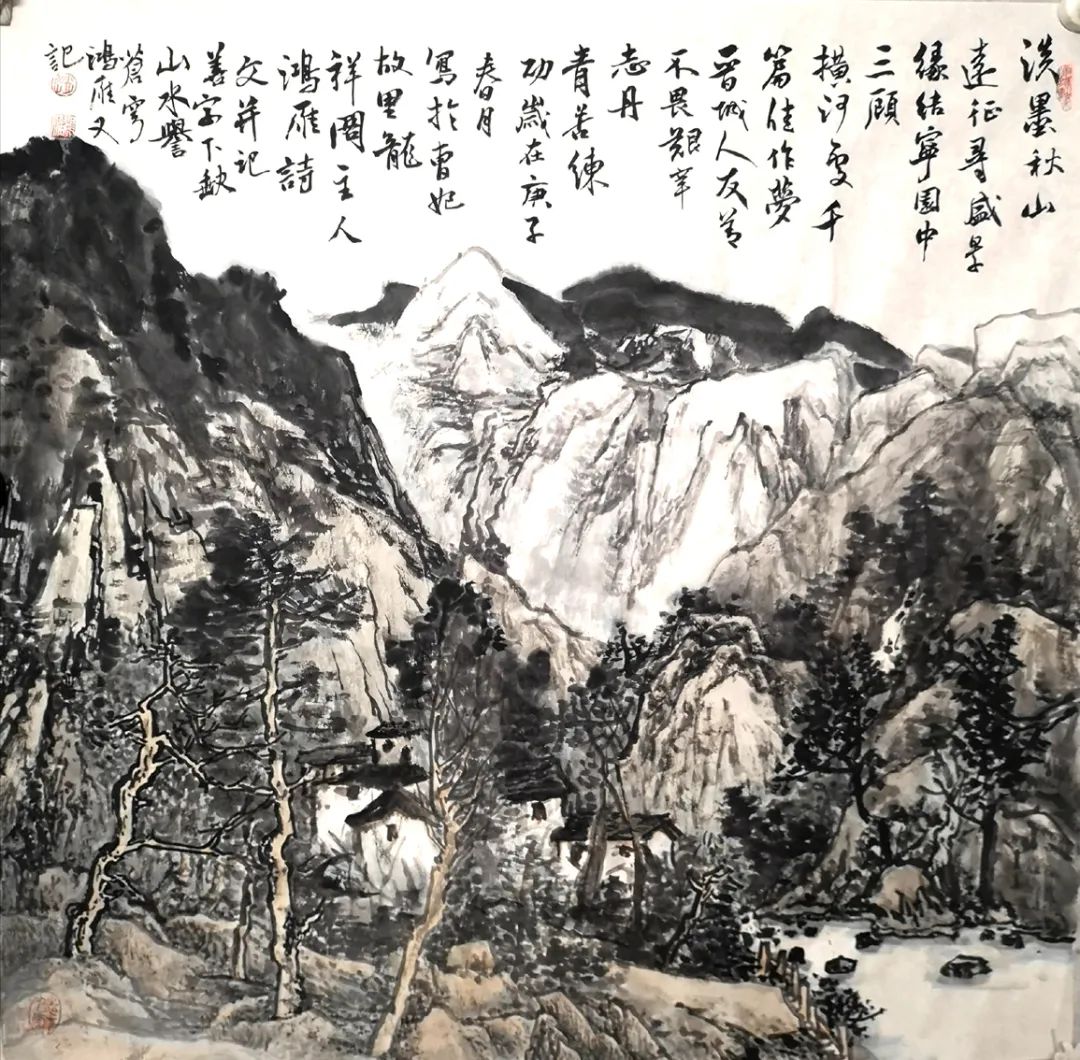 淡墨秋山
遠征尋盛景
緣结寧園中
三顾
横河雯千
篇佳作夢
晋城人友善
不畏艱辛
志丹
青苦練
功歲在庚子
春月
寫於曹妃
故里龍
祥閣主人
鴻雁詩
文并记
善字下缺
山水譽
蒼穹
鴻雁又
記